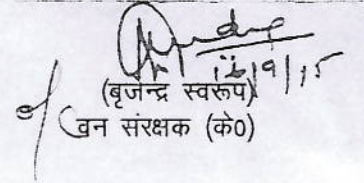 12/9/15
(बृजेन्द्र स्वरूप)
वन संरक्षक (के0)